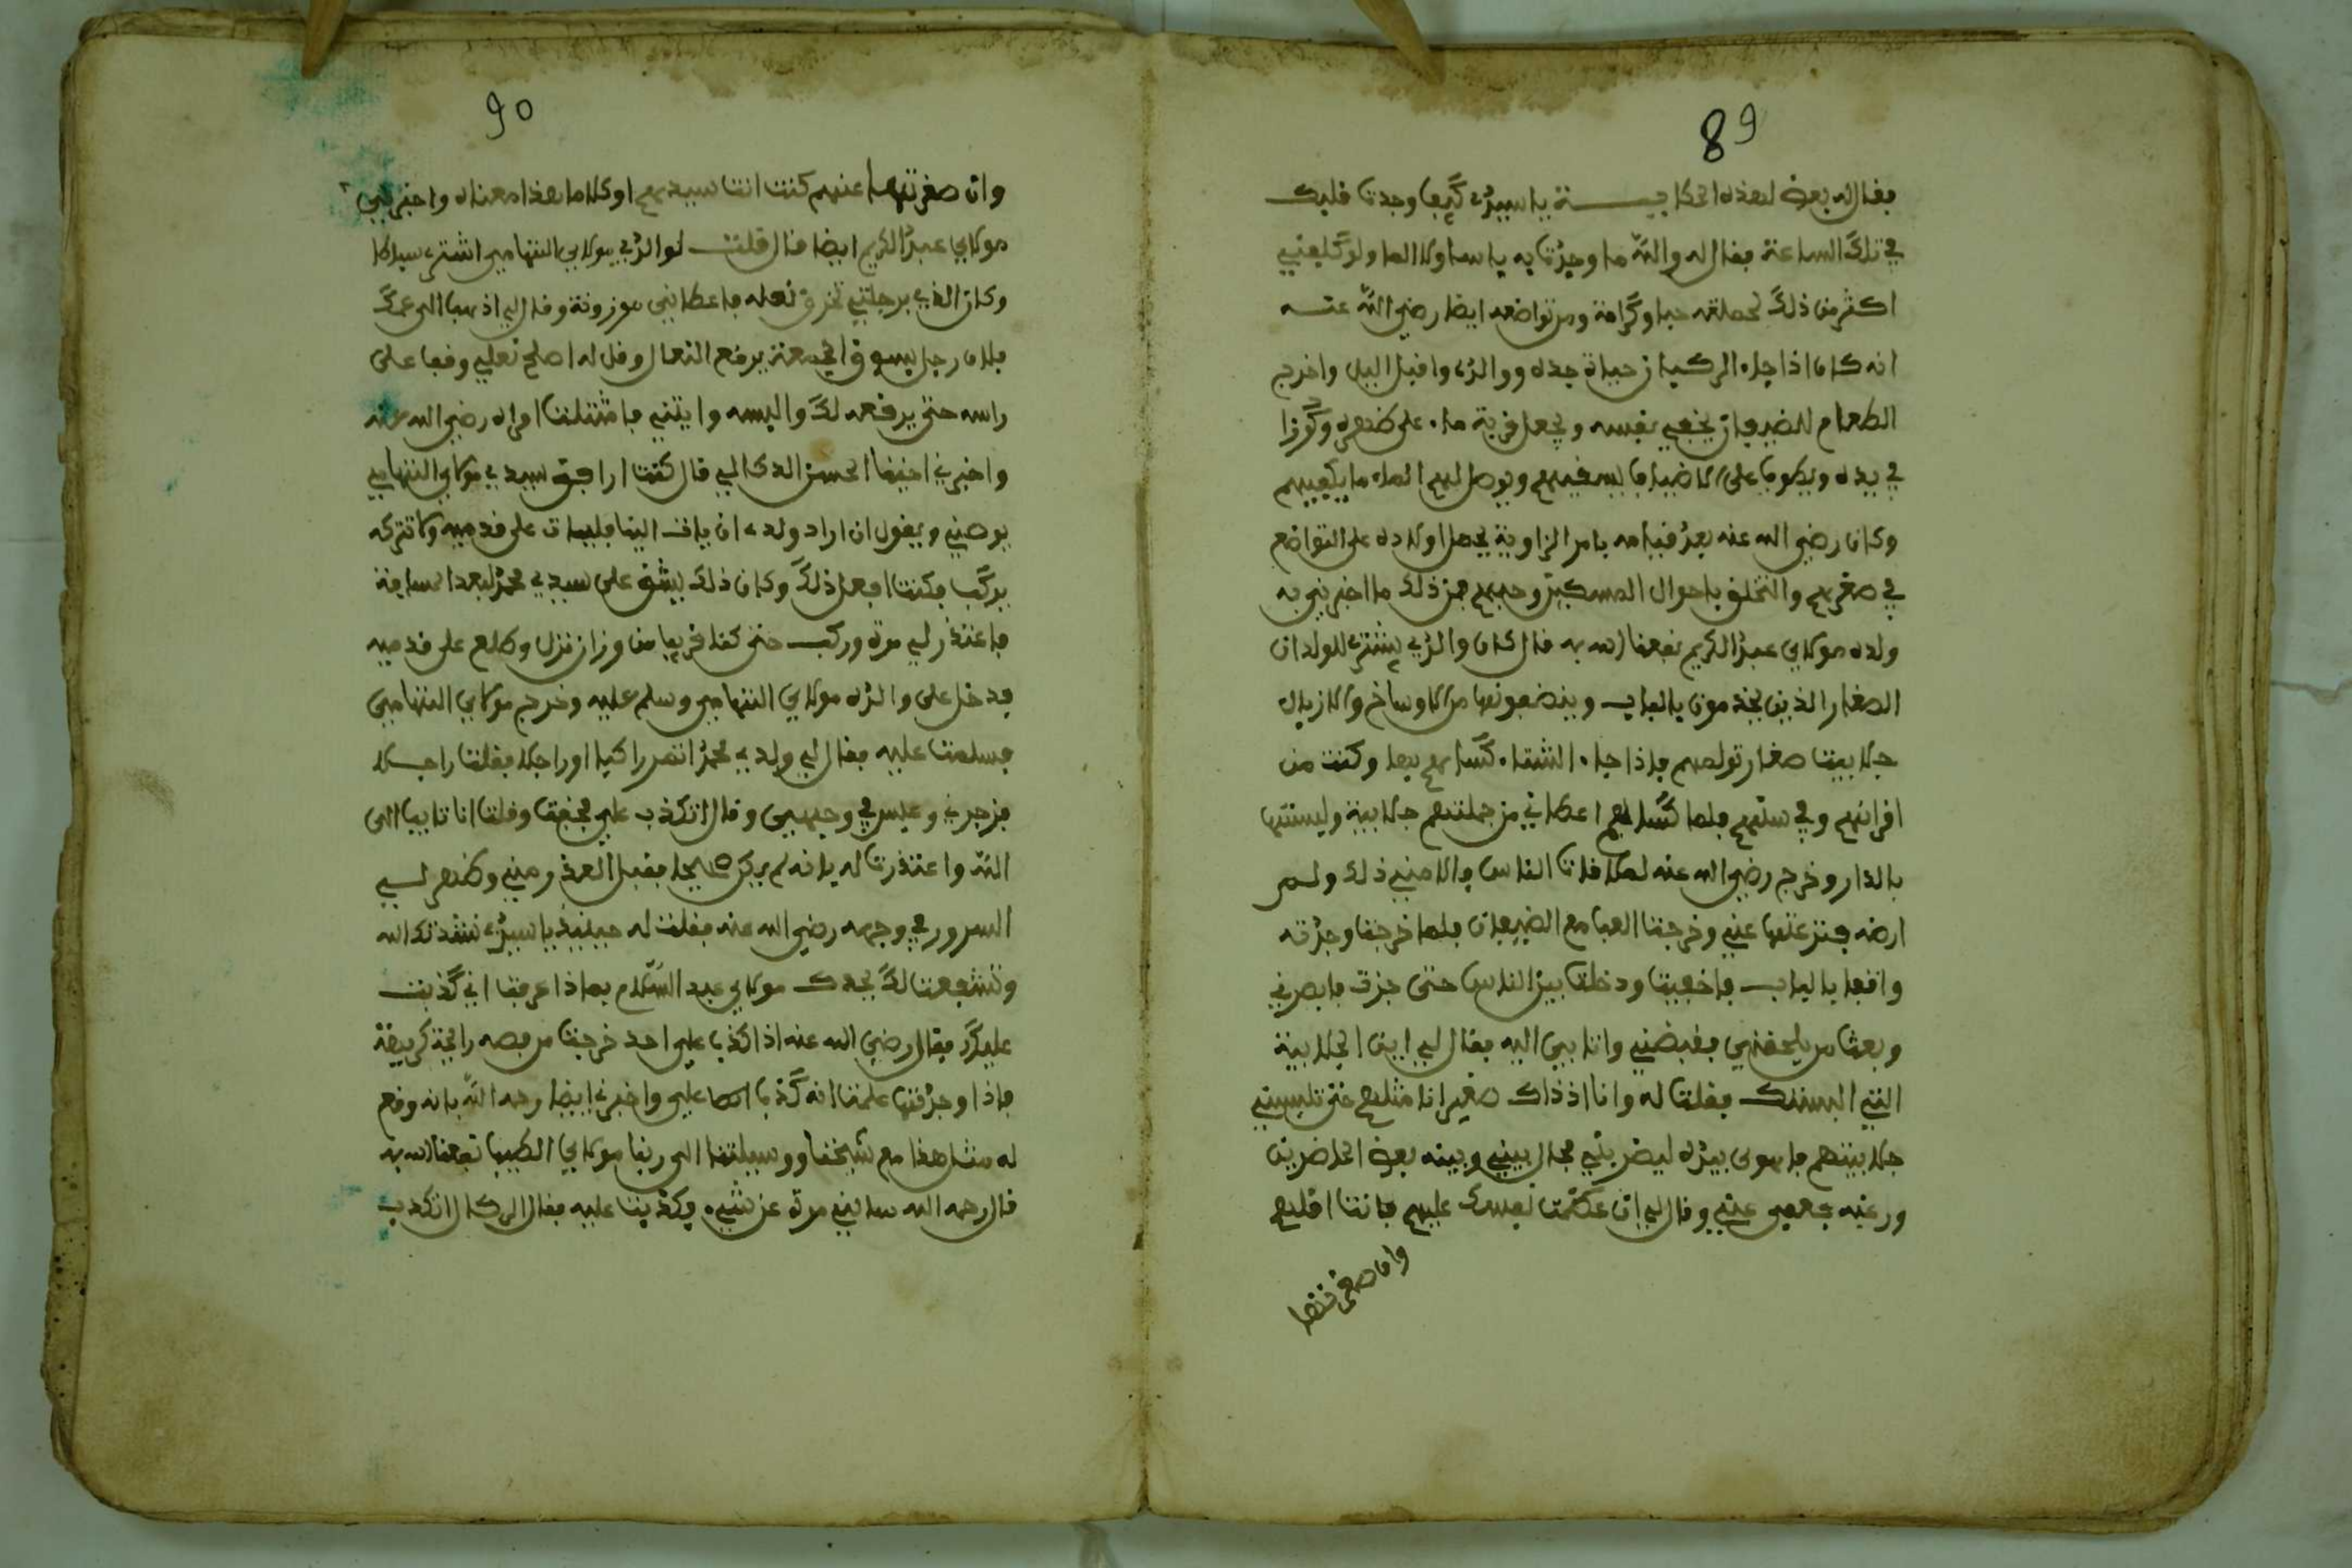 89
فقال له بعض لهذه الحكايـــة يا سيدي كيف وجدت قلبك
في تلك الساعة فقال له والله ما وجدت به باسا ولا الما ولو كلفني
اكثر من ذلك لحملته حبا وكرامة ومن تواضعه ايضا رضي الله عنه
انه كان اذا جاء الركب از حياة جده ووالده واقبل اليل واخرج
الطعام للضيفان يخفي نفسه ويجعل قربة ماء على ظهره وكوزا
في يده ويطوف على الاضياف يسقيهم ويوصل لهم الماء ما يكفيهم
وكان رضي الله عنه بعد قيامه بامر الزاوية يحمل اولاده على التواضع
في صغرهم والتخلق باحوال المسكين وحبهم فمن ذلك ما اخبرني به
ولده مولاي عبد الكريم نفعنا الله به قال كان والدي يشتري للولدان
الصغار الذين يخدمون بالباب وينضفونها من الاوساخ والازبال
جلابيت صغار تولمهم فاذا جاء الشتاء كساهم بها وكنت من
اقرانهم وفي سنهم فلما كساهم اعطاني من جملتهم جلابية ولبستها
بالدار وخرج رضي الله عنه لملاقات الناس والامني ذلك ولم
ارضه فنزعتها عني وخرجت العب مع الضيفان فلما خرجت وجدته
واقفا بالباب فاخفيت ودخلت بين الناس حتى جزت فابصرني
وبعث من يلحقني فقبضني واتا بي اليه فقال لي اين الجلابية
التي البستك فقلت له وانا اذذاك صغير انا مثلهم حتى تلبسني
جلابيتهم فاهوى بيده ليضربني فحال بيني وبينه بعض الحاضرين
ورغبه فعفى عني وقال لي ان عظمت نفسك عليهم فانت اقلهم
وان صغرتها
90
وان صغرتها عنهم كنت انت سيدهم او كلاما هذا معناه واخبرني
مولاي عبد الكريم ايضا قال قلت لوالدي مولاي التهامي اشتري سباطا
وكان الذي برجلي تخرق نعله فاعطاني موزونة وقال لي اذهب الى عمك
فلان رجل بسوق الجمعة يرفع النعال وقل له اصلح نعلي وقف على
راسه حتى يرفعه لك والبسه وايتني فامتثلت امره رضي الله عنه
واخبرني اخينا الحسن الدكالي قال كنت ارافق سيدي مولاي التهامي
يوصني ويقول ان اراد ولدي ان يات الينا فليات على قدميه ولا تتركه
يركب فكنت افعل ذلك وكان ذلك يشق على سيدي محمد لبعد المسافة
فاعتذر لي مرة وركب حتى كنا قريبا من وزان نزل وطلع على قدميه
فدخل على والده مولاي التهامي وسلم عليه وخرج مولاي التهامي
فسلمت عليه فقال لي ولدي محمد اتى راكبا او راجلا فقلت راجــلا
فزجرني وعبس في وجهي وقال اتكذب علي فخفت وقلت انا تايب الى
الله واعتذرت له بانه لم يركب الا فقبل العذر مني وظهر لــي
السرور في وجهه رضي الله عنه فقلت له حينيذ يا سيدي نشدتك الله
وتشفعت لك بجدك مولاي عبد السلام بماذا عرفت اني كذبت
عليك فقال رضي الله عنه اذا كذب علي احد خرجت من فمه رائحة كريهة
فاذا وجدتها علمت انه كذب علي واخبرني ايضا رحمه الله بانه وقع
له مثل هذا مع شيخنا ووسيلتنا الى ربنا مولاي الطيب نفعنا الله به
قال رحمه الله سالني مرة عن شيء فكذبت عليه فقال اتكذب